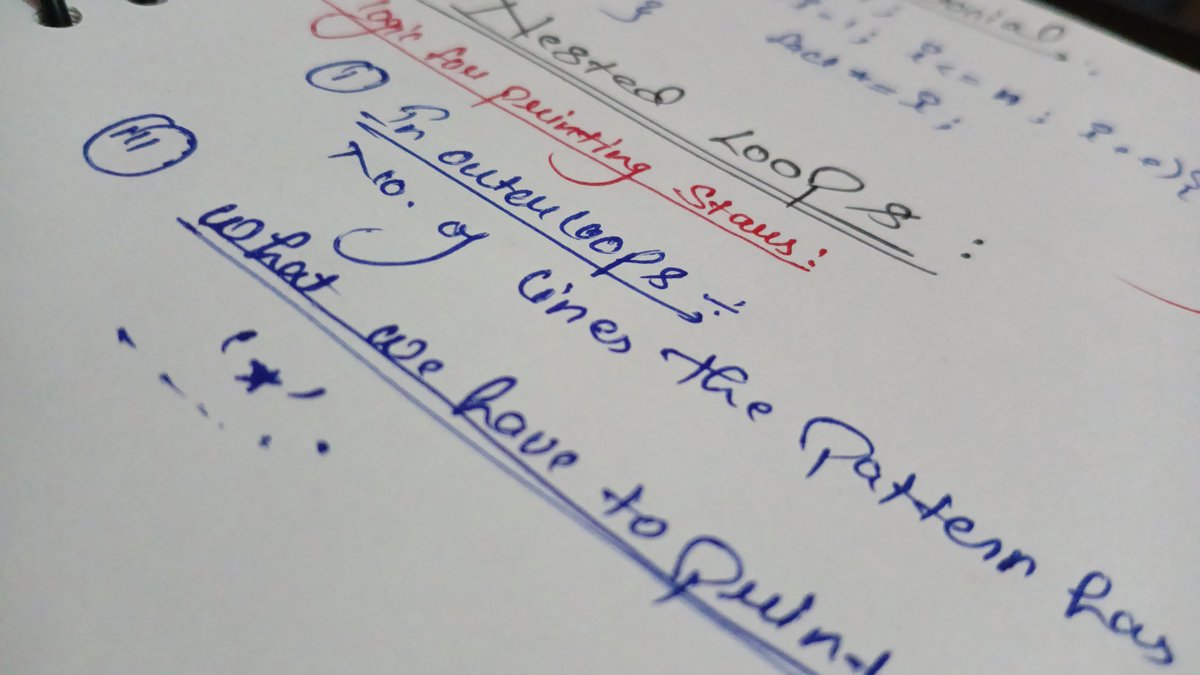 i <= n ; i++){
fact *= i;
}
Nested Loops :
logic for printing stars:
I In outer loops :-
No. of lines the Pattern has
III what we have to print
'*'